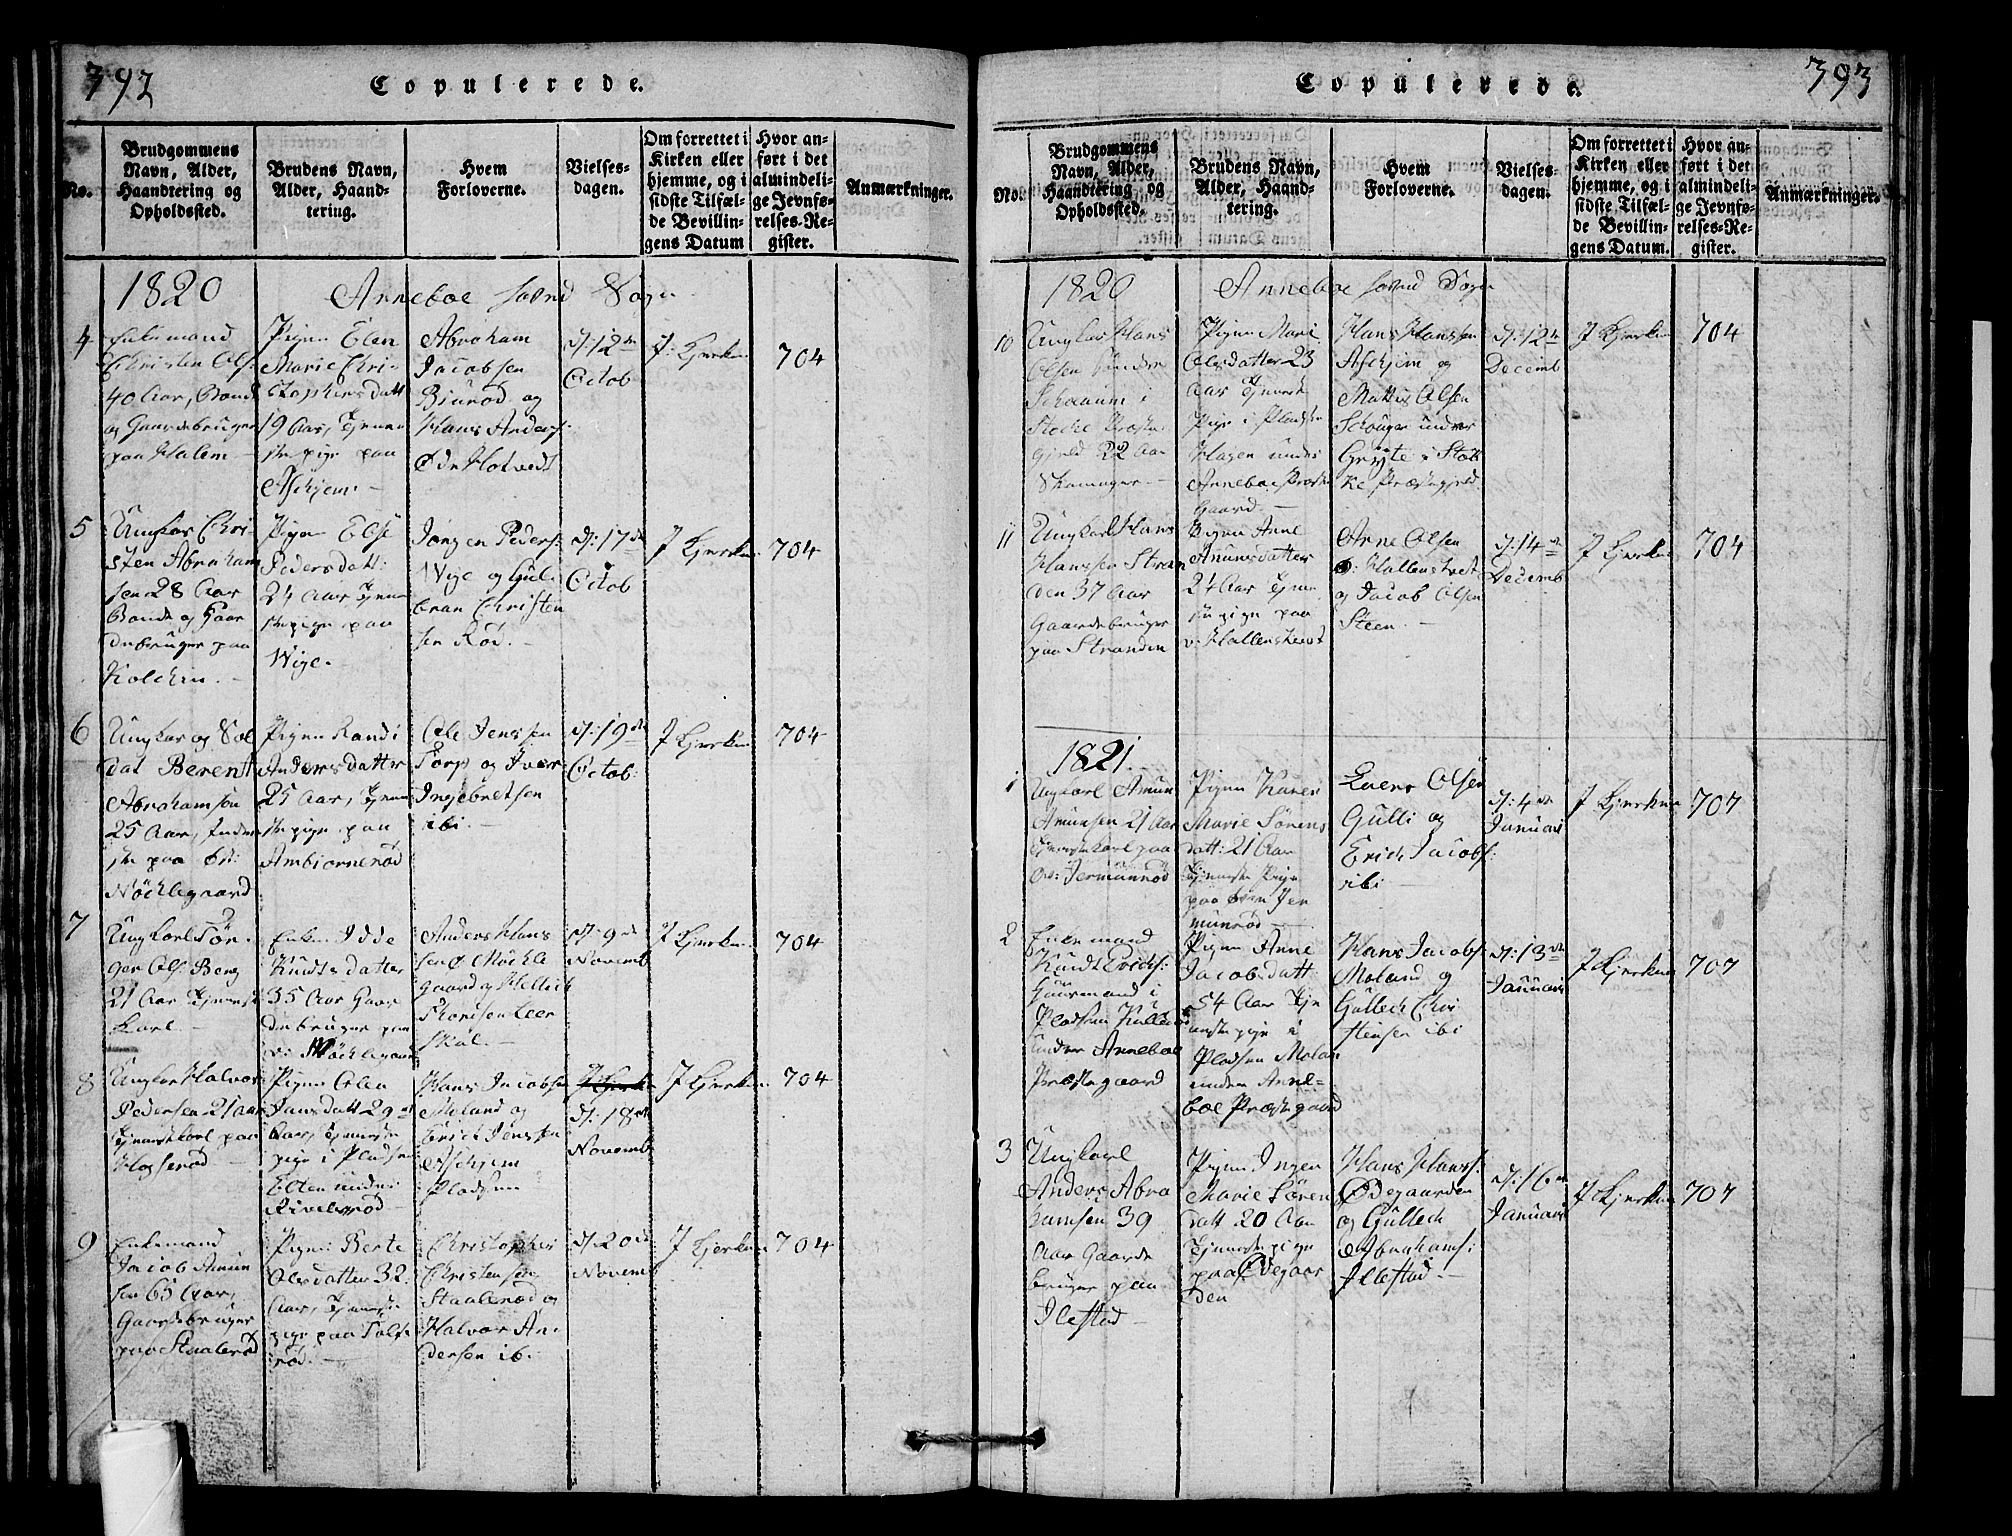 392
Copulerede.
No.
Brudgommens
Navn, Alder,
Haandtering og
Opholdssted.
Brudens Navn,
Alder, Haand-
tering.
Hvem
Forloverne.
Vielses-
dagen.
Om forrettet i
Kirken eller
hjemme, og i
sidste Tilfæl-
de Bevillin-
gens Datum
Hvor an-
ført i det
almindeli-
ge Jevnfø-
relses-Re-
gister.
Anmærkninger.
1820
Anneboe Hoved Sogn
4
Enkemand
Christen Ols:
40 Aar, Bonde
og Gaardebruger
paa Holem
Pigen Elen
Marie Chri-
stophersdatt
19 Aar, Tjene-
stepige paa
Aschjem
Abraham
Jacobsen
Biurød og
Hans Anders:
Ødr Holvedt
d: 12te
Octob
J: Kjerken
704
5
Ungkar Chri-
sten Abraham
sen 28 Aar
Bonde og Gaar
debruger paa
Kolchin.
Pigen Else
Pedersdatt:
24 Aar Tjene
stepige paa
Wige.
Jørgen Peders:
Wige og Gul-
bran Christen
sen Rød.
d: 17de
Octob
J Kjerken
704
6
Ungkar og Sol
dat Berent
Abrahamsøn
25 Aar, Inder
ste paa ød:
Nøchlegaard
Pigen Randi
Andersdatter
25 Aar, Tjene
stepige paa
Ambiørnerød
Ole Jenssen
Torp og Iver
Ingebretsen
ibi.
d: 19de
Octob:
J Kjerken
704
7
Ungkarl Tør-
ger Ols: Berg
21 Aar Tjeneste
Karl.
Enken Idde
Knudtsdatter
35 Aar Gaar
debruger paa
v: Nøchlegaard
Anders Hans
sen Ø Nøchle
gaard og Hellech
Thorisen Leer
skal.
d: 9de
Novemb
J Kjerken
704
8
Ungkar Halvor
Pedersen 21 aar
Tjenestekarl paa
Hogserød
Pigen Olea
Jansdatt 29
Aar, Tjeneste
pige i Pladsen
Elten under
Rivelsrød
Hans Jacobsen
Moland og
Erich Jenssen
Aschjem
Pladsen
J Kjerken
d: 18de
Novemb
J Kjerken
704
9
Enkemand
Jacob Amun
sen 65 Aar,
Gaardebruger
paa Staalerød
Pigen Berte
Olesdatter 32
Aar, Tjeneste
pige paa Tolfs
rød.
Christopher
Christensen
Staalerød og
Halvor An-
dersen ibi
d 20de
Novemb
J Kjerken
704
393
Copulerede.
No.
Brudgommens
Navn, Alder,
Haandtering og
Opholdssted.
Brudens Navn,
Alder, Haand-
tering.
Hvem
Forloverne.
Vielses-
dagen.
Om forrettet i
Kirken eller
hjemme, og i
sidste Tilfæl-
de Bevillin-
gens Datum.
Hvor an-
ført i det
almindeli-
ge Jevnfø-
relses-Re-
gister.
Anmærkninger.
1820
Anneboe Hoved Sogn
10
Ungkar Hans
Olsen
i
Stocke Præste-
gjeld 22 Aar
Pigen Mari
Olesdatter 23
Aar Tjeneste
Pige i Pladsen
Hagen under
Anneboe Præste
Gaard.
Hans Hanssen
Aschjem og
Mattis Olsen
Schouger under
Gryte i Stoc
ke Præstegjeld
d: 12te
Decemb
J Kjerken
704
11
Ungkarl Hans
Hanssen Stran
den 37 Aar
Gaardebruger
paa Stranden
Pigen Anne
Amunsdatter
24 Aar Tjene
stepige paa
v: Hallenstvedt
Arne Olsen
Hallenstvedt
og Jacob Olsen
Steen.
d: 14de
Decemb
J Kjerken
704
1821.
1
Ungkarl Amun
Amunsen 21 Aar
Tjenestekarl paa
Jermunrød
Pigen Karen
Marie Sørens
datt: 21 Aar
Tjeneste Pige
paa Jer
munrød
Olsen
Gulli og
Erich Jacobs:
ibi
d: 4de
Januari
J Kjerken
707
2
Enkemand
Knudt Erichs:
Huusmand i
Pladsen Kullerød
under Anneboe
Præstegaard
Pigen Anne
Jacobsdatt:
54 Aar Tje
nestepige i
Pladsen Molan
under Anne-
boe Præstegaard
Hans Jacobs:
Moland og
Gullech Chri
stensen ibi
d: 13de
Januari
J Kjerken
707
3
Ungkarl
Anders Abra
hamsen 39
Aar Gaarde
bruger paa
Ilestad
Pigen Inger
Marie Søren
datt 20 Aar
Tjenestepige
paa Ødegaar
den
Hans Hans:
Ødegaarden
og Gullech
Abrahams:
Illestad.
d: 16de
Januari
J Kjerken
707